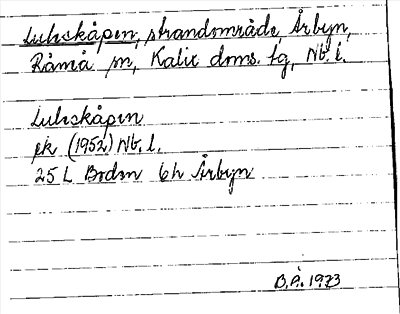 Luhskåpen, strandområde, Årbyn,
Råneå sn, Kalix doms. tg, Nb. l.
Luhskåpen
ek (1952) Nb. l.
25 L Boden 6h Årbyn
B.Å. 1973